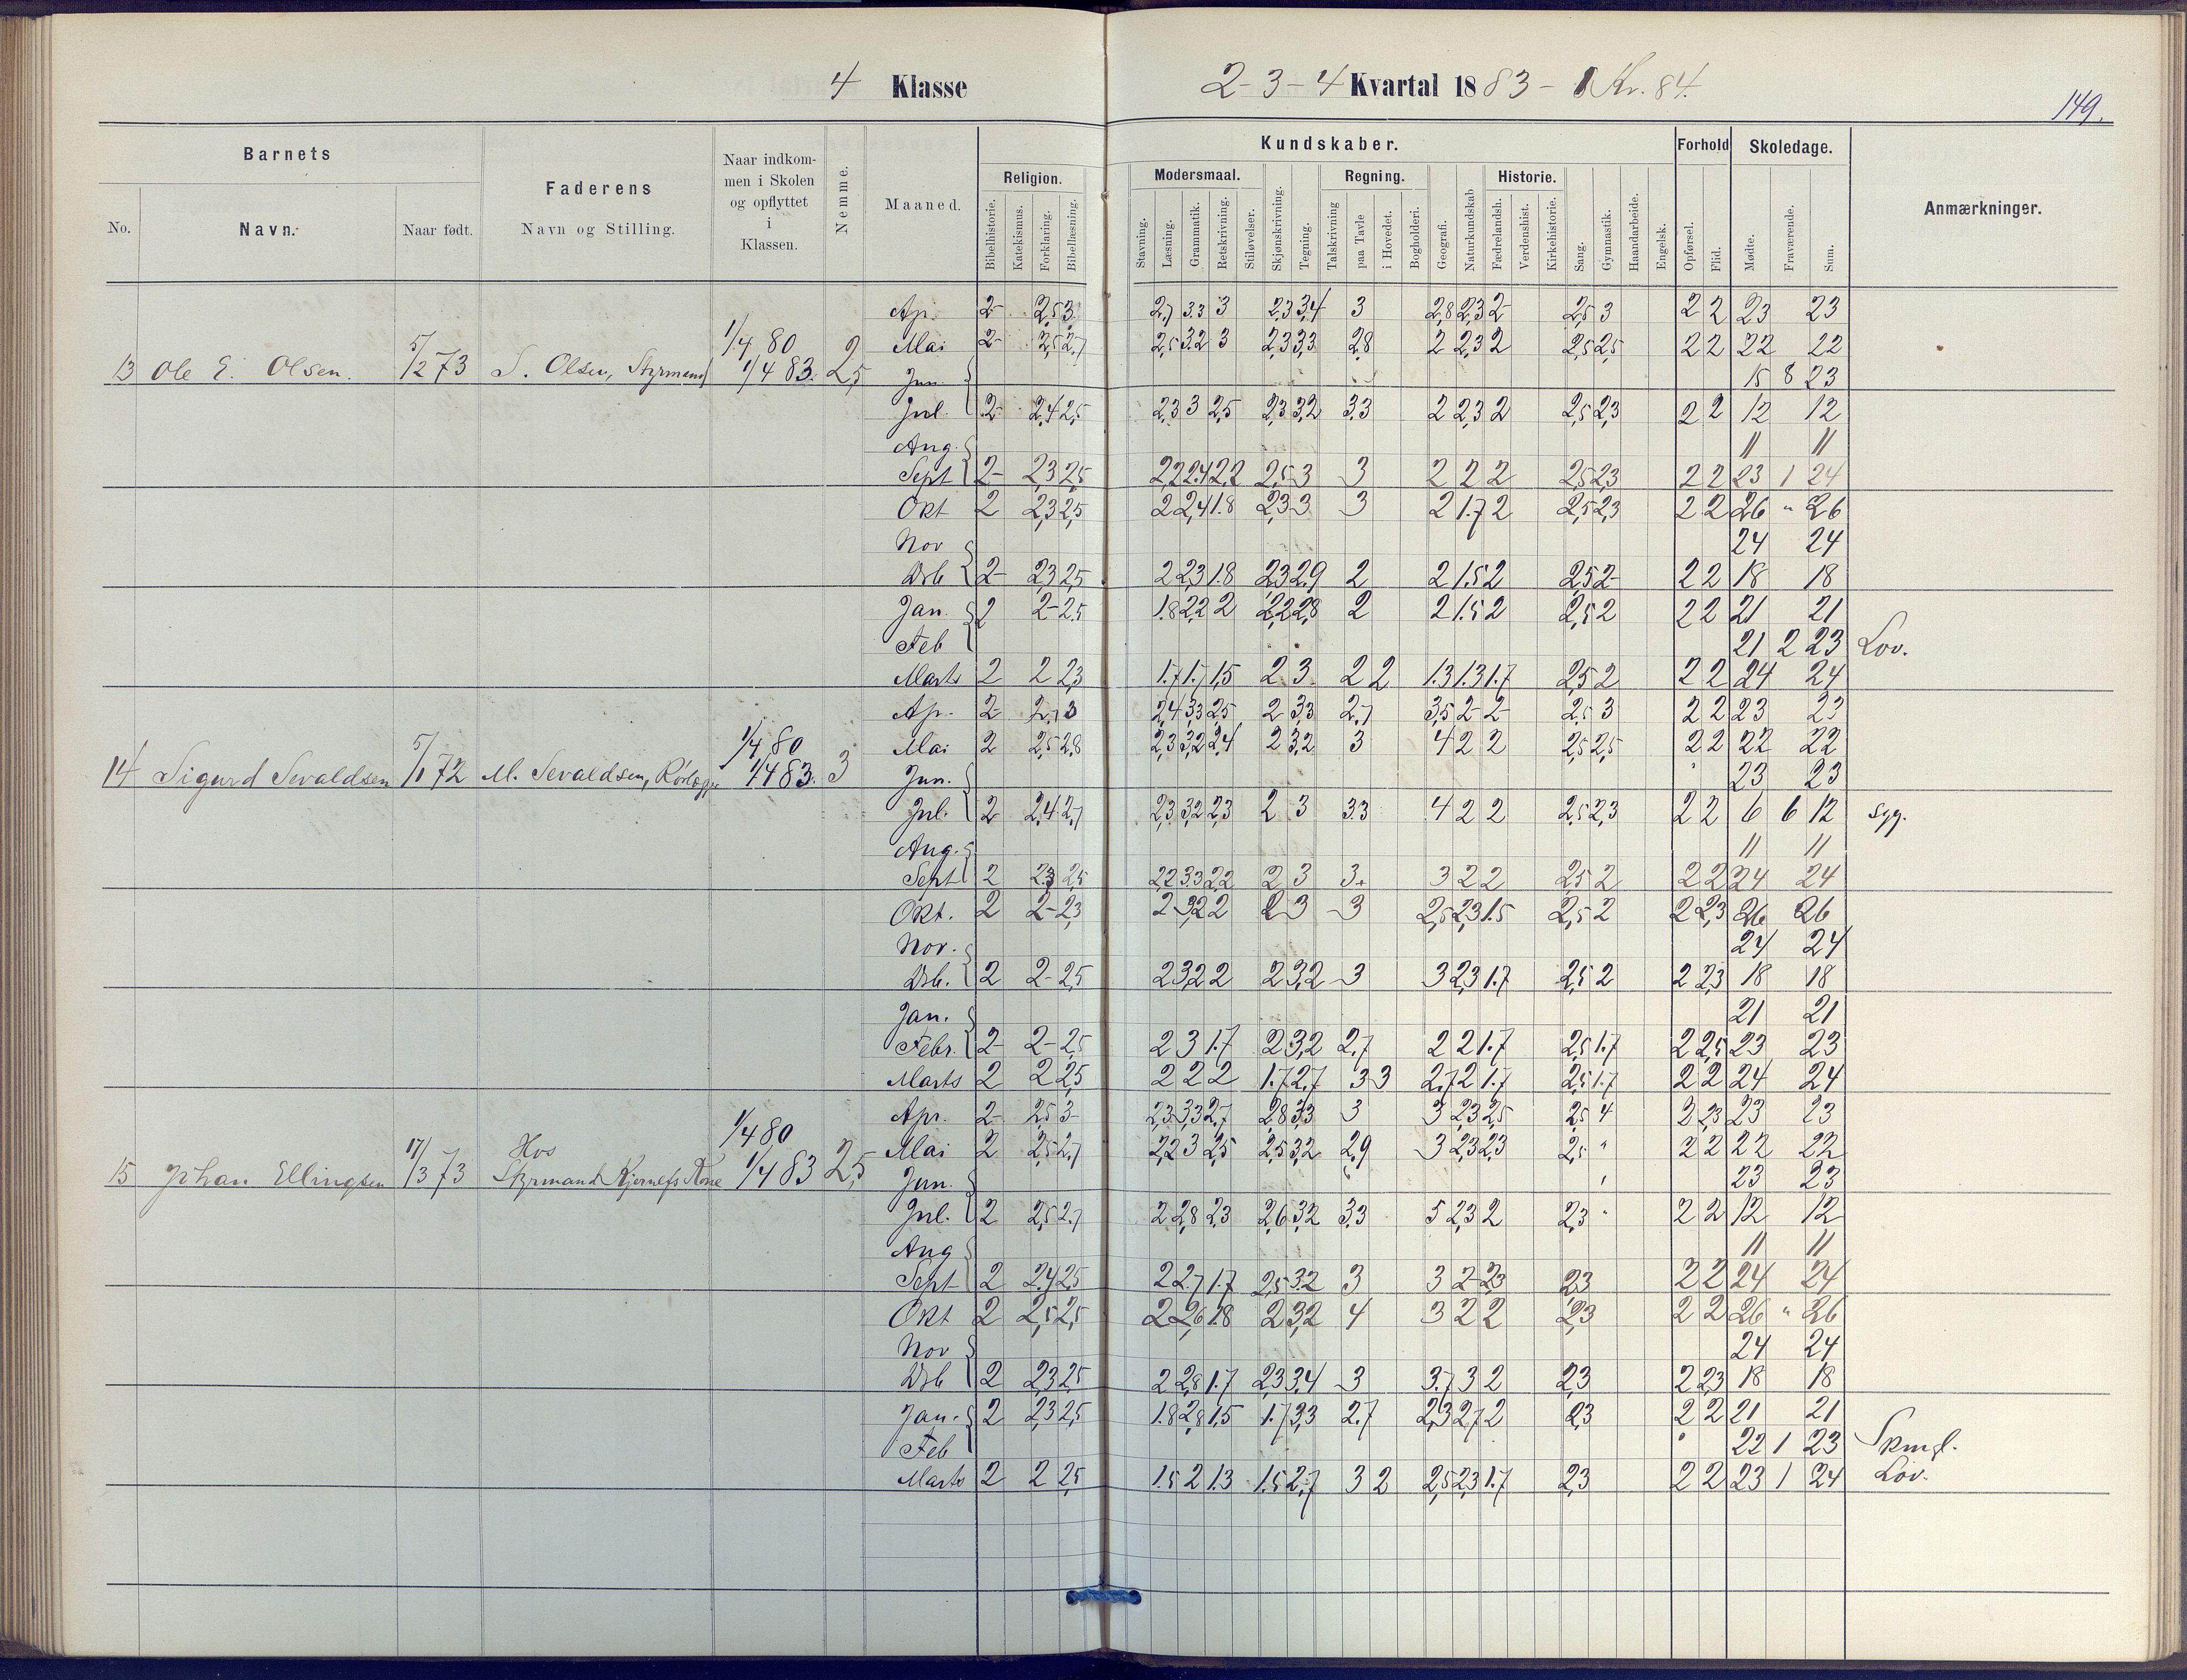 4 Klasse 2-3-4 Kvartal 1883 - 1 Kv. 84.
149.
Barnets
Faderens
Naar indkommen i Skolen og opflyttet i Klassen.
Nemme.
Maaned.
Kundskaber.
Forhold
Skoledage.
Anmærkninger.
Religion.
Modersmaal.
Regning.
Historie.
No. Navn. Naar født. Navn og Stilling.
Bibelhistorie. Katekismus. Forklaring. Bibellæsning. Stavning. Læsning. Grammatik. Retskrivning. Stiløvelser. Skjønskrivning. Tegning. Talskrivning paa Tavle i Hovedet. Bogholderi. Geografi. Naturkundskab Fædrelandsh. Verdenshist. Kirkehistorie. Sang. Gymnastik. Haandarbeide. Engelsk. Opførsel. Flid. Mødte. Fraværende. Sum.
Ap. 2- 2,5 3 2,7 3.3 3 2,3 3,4 3 2,8 2,3 2 2,5 3 2 2 23 23
1/4 80
Mai 2- 2,5 2,7 2,5 3.2 3 2,3 3,3 2,8 2 2,3 2 2,5 2,5 2 2 22 22
13 Ole E. Olsen. 5/2 73 S. Olsen, Styrmand 1/4 83. 2,5 Jun. 15 8 23
Jul. 2- 2,4 2,5 2,3 3 2,5 2,3 3,2 3,3 2 2,3 2 2,5 2,3 2 2 12 12
Aug. 11 11
Sept 2- 2,3 2,5 2,2 2,4 2,2 2,5 3 3 2 2 2 2,5 2,3 2 2 23 1 24
Okt 2 2,3 2,5 2 2,4 1.8 2,3 3 3 2 1.7 2 2,5 2,3 2 2 26 " 26
Nov 24 24
Dsb 2- 2,3 2,5 2 2,3 1.8 2,3 2,9 2 2 1.5 2 2,5 2- 2 2 18 18
Jan. 2 2- 2.5 1.8 2,2 2 2,2 2,8 2 2 1.5 2 2,5 2 2 2 21 21
Feb 21 2 23 Lov.
Marts 2 2 2,3 1.7 1.7 1,5 2 3 2 2 1.3 1.3 1.7 2,5 2 2 2 24 24
Ap. 2- 2,7 3 2,4 3,3 2,5 2 3,3 2,7 3,5 2- 2- 2,5 3 2 2 23 23
1/4 80
Mai 2 2,5 2,8 2,3 3,2 2,4 2 3,2 3 4 2 2 2,5 2,5 2 2 22 22
14 Sigurd Sevaldsen 5/1 72 M. Sevaldsen, Rørlægger 1/4 83. 3 Jun. 23 23
Jul. 2 2,4 2,7 2,3 3,2 2,3 2 3 3.3 4 2 2 2,5 2,3 2 2 6 6 12 syg.
Aug. 11 11
Sept 2 2,3 2,5 2,2 3.3 2,2 2 3 3+ 3 2 2 2,5 2 2 2 24 24
Okt. 2 2- 2,3 2 3,2 2 2 3 3 2,5 2,3 1.5 2,5 2 2 2,3 26 26
Nov. 24 24
Dsb. 2 2- 2,5 2 3,2 2 2 3,2 3 3 2,3 1.7 2,5 2 2 2,3 18 18
Jan. 21 21
Febr. 2- 2- 2,5 2 3 1.7 2 3,2 2,7 2 2 1.7 2,5 1.7 2 2,5 23 23
Marts 2 2 2,5 2 2 2 1.7 2,7 3 3 2,7 2 1.7 2,5 1.7 2 2 24 24
Apr. 2- 2,5 3 2,3 3,3 2,7 2,8 3,3 3 3 2,3 2,5 2,5 4 2 2,3 23 23
1/4 80
Mai 2 2,5 2,7 2,2 3 2,5 2,5 3,2 2,9 3 2,3 2,3 2,5 " 2 2 22 22
Hos
15 Johan Ellingsen 17/3 73 Styrmand Kone 1/4 83 2,5 Jun. 23 23
Jul. 2 2,5 2,7 2 2,8 2,3 2,6 3,2 3,3 5 2,3 2 2,3 " 2 2 12 12
Aug 11 11
Sept 2 2,4 2,5 2 2,7 1.7 2,5 3.2 3 3 2 2,3 2,3 2 2 24 24
Okt 2 2,5 2,5 2 2,6 1.8 2 3,2 4 3 2 2 2,3 2 2 26 " 26
Nov 24 24
Dsb 2 2,3 2,5 2 2,8 1.7 2,3 3,4 3 3,7 3 2 2,3 2 2,3 18 18
Jan. 2 2,3 2,5 1.8 2,8 1,5 1.7 3,3 2.7 2,3 2,7 2 2,3 2 2 21 21
Feb 22 1 23
Marts 2 2 2,5 1.5 2 1.3 1.5 2,7 3 2 2,5 2,3 1.7 2,3 2 2 23 1 24 Lov.